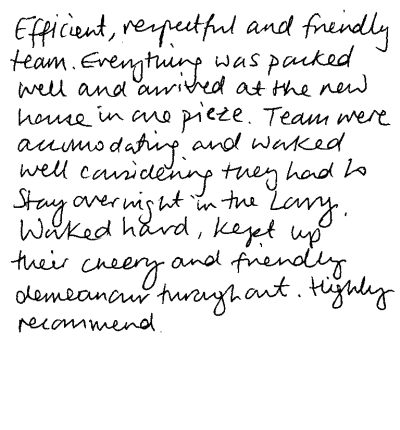 Efficient, respectful and friendly
team. Everything was packed
well and arrived at the new
house in one pieze. Team were
accomodating and worked
well considering they had to
Stay overnight in the Lorry.
Worked hard, kept up
their cheery and friendly
demeanour throughout. Highly
recommend.